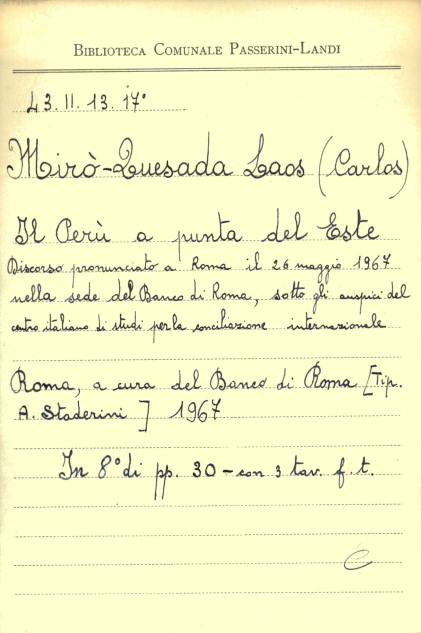 BIBLIOTECA COMUNALE PASSERINI-LANDI
L3.II.13.17°
Mirò-Quesada Laos (Carlos)
Il Perù a punta del Este
Discorso pronunciato a Roma il 26 maggio 1967
nella sede del Banco di Roma, sotto gli auspici del
centro italiano di studi per la conciliazione internazionale
Roma, a cura del Banco di Roma [Tip.
A. Staderini] 1967
In 8° di pp. 30 - con 3 tav. f. t.
C